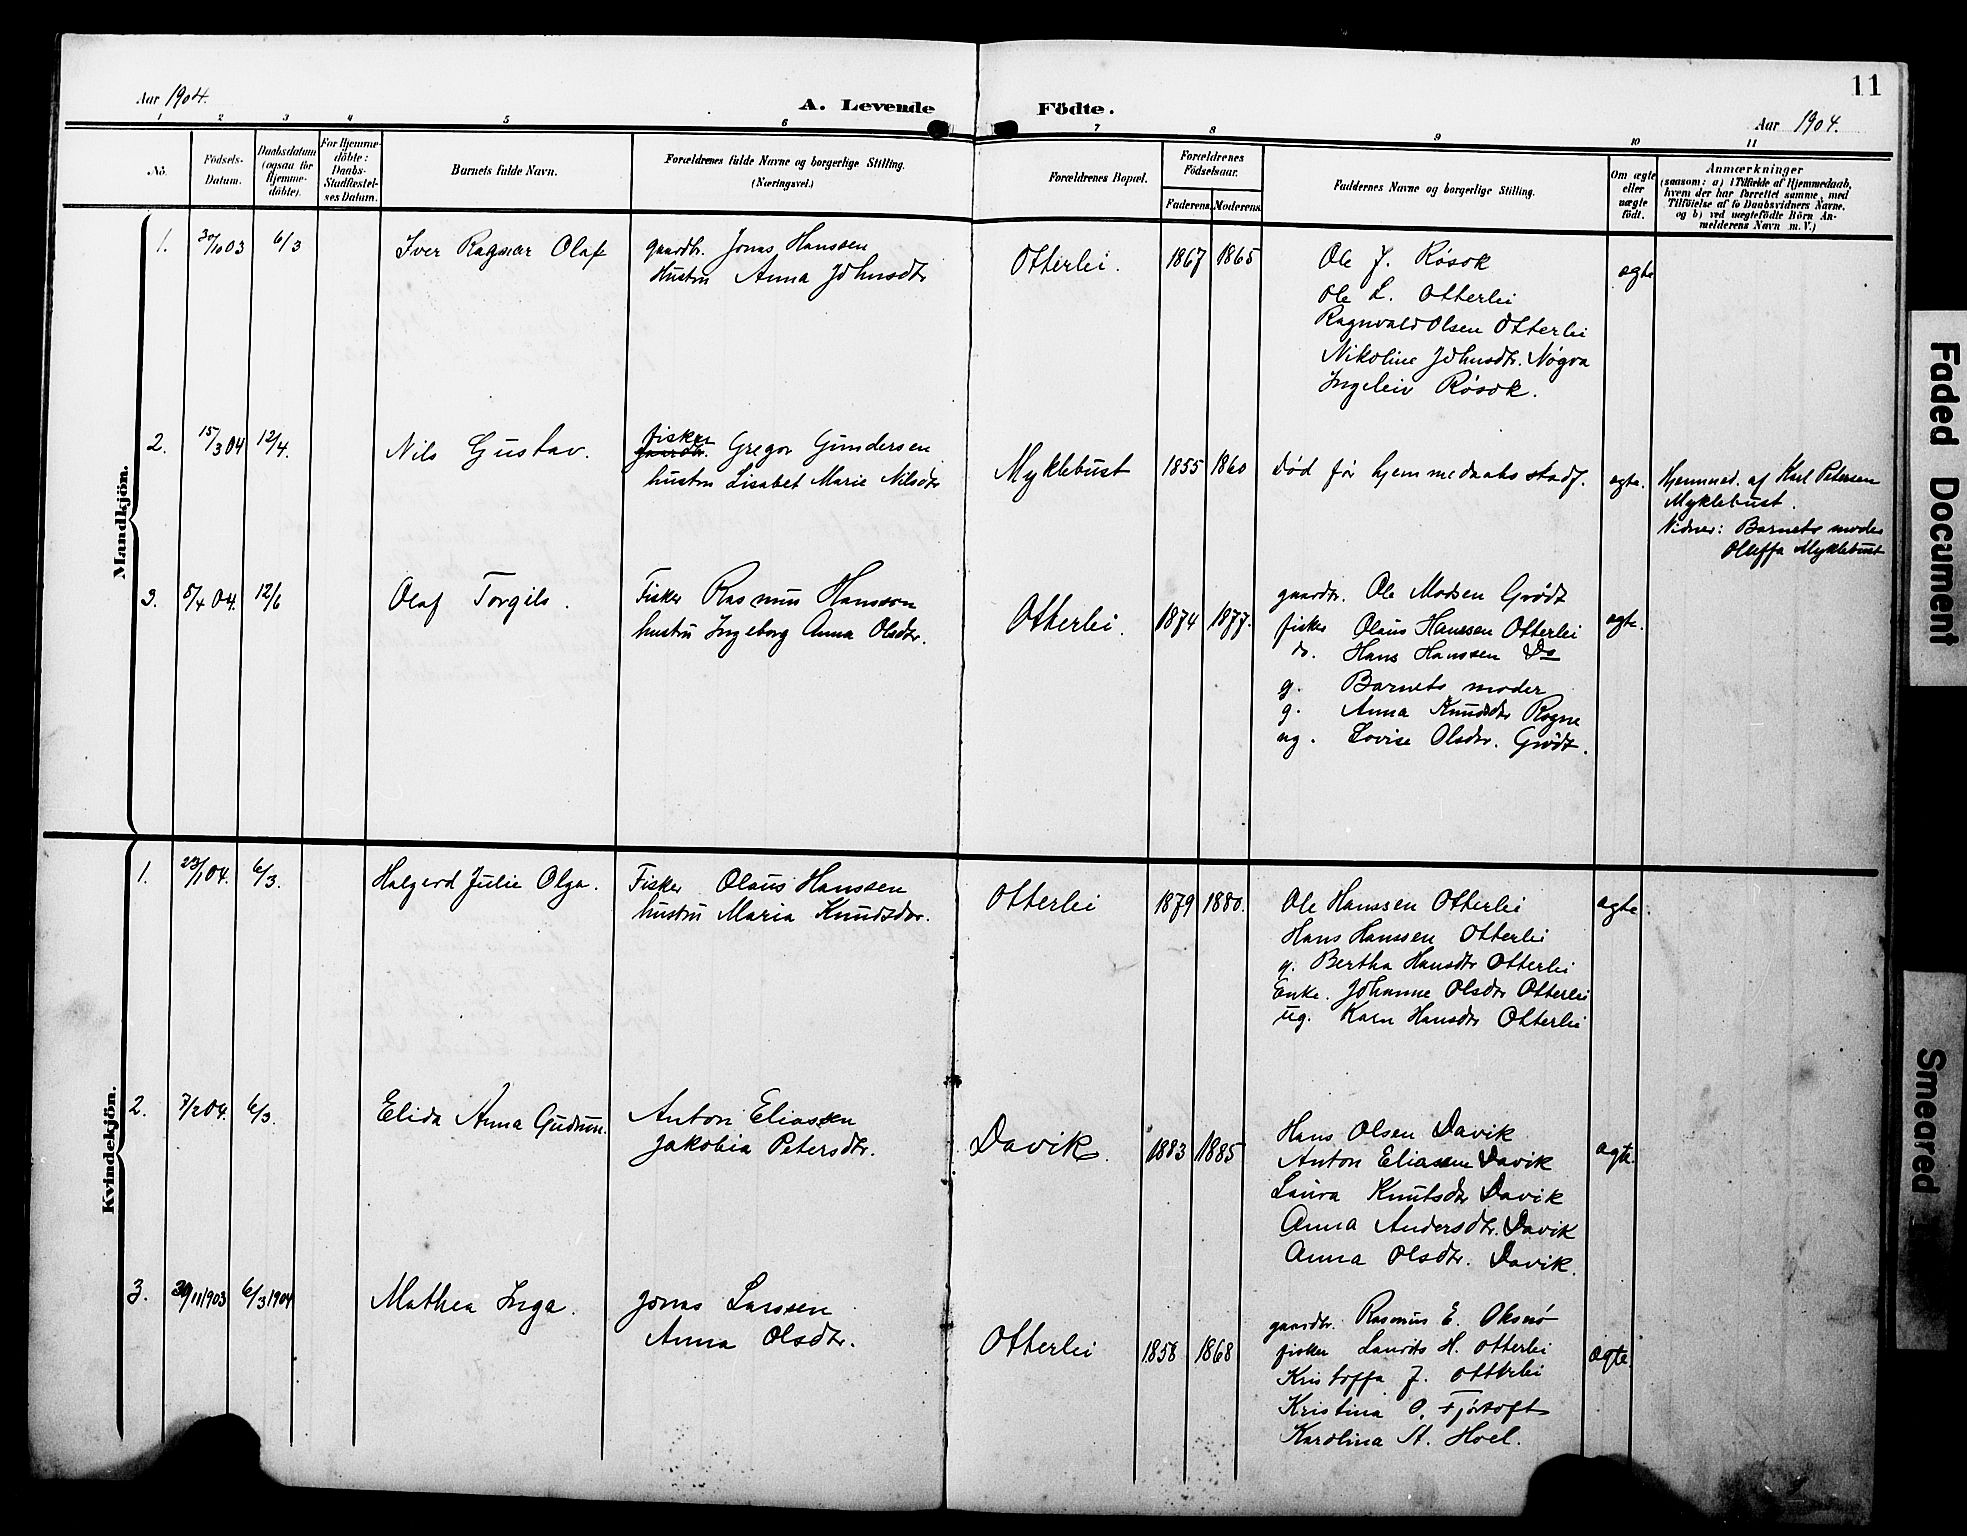 11
Aar 1904.
A. Levende Födte.
Aar 1904.
1 2 3 4 5 6 7 8 9 10 11
No.
Födsels-
Datum.
Daabsdatum
(ogsaa for
Hjemme-
döbte).
For Hjemme-
döbte:
Daabs-
Stadfæstel-
ses Datum.
Barnets fulde Navn.
Forældrenes fulde Navne og borgerlige Stilling.
(Næringsvei.)
Forældrenes Bopæl.
Forældrenes
Födselsaar.
Faderens. Moderens.
Faddernes Navne og borgerlige Stilling.
Om ægte
eller
uægte
födt.
Anmærkninger
(saasom: a) i Tilfælde af Hjemmedaab,
hvem der har forrettet samme, med
Tilföielse af to Daabsvidners Navne.
og b) ved uægtefödte Börn An-
melderens Navn m. V.)
Mandkjön.
1. 30/10 03 6/3 Iver Ragnar Olaf
gaardbr. Jonas Hanssen
Hustru Anna Johnsdtr
Otterlei. 1867 1865
Ole J. Røsok
Ole L. Otterlei
Ragnvald Olsen Otterlei
Nikoline Johnsdtr. Nogva
Ingeleiv Røsok.
ægte
2. 15/3 04 12/4. Nils Gustav.
fisker
gaardbr. Gregor Gundersen
hustru Lisabet Marie Nilsdtr
Myklebust 1855 1860 Død før hjemmedaabs stadf. ægte.
Hjemmed. af Karl Petersen
Myklebust.
Vidner: Barnets moder
Oluffa Myklebust
3. 5/4 04. 12/6 Olaf Torgils.
Fisker Rasmus Hansson
hustru Ingeborg Anna Olsdtr.
Otterlei. 1874 1877.
gaardbr. Ole Madsen Grødt
fisker Olaus Hanssen Otterlei
do. Hans Hanssen Do
g. Barnets moder
g. Anna Knudsdtr Rogne
ug. Lovise Olsdtr. Grødt.
ægte.
Kvindekjön.
1. 23/1 04. 6/3. Halgerd Julie Olga.
Fisker Olaus Hanssen
hustru Maria Knudsdtr.
Otterlei 1879 1880.
Ole Hanssen Otterlei
Hans Hanssen Otterlei
g. Bertha Hansdtr Otterlei
Enke. Johanne Olsdtr Otterlei
ug. Karn Hansdtr Otterlei
ægte.
2. 7/2 04. 6/3. Elida Anna Gudrun.
Anton Eliassen
Jakobia Petersdtr.
Davik. 1883 1885
Hans Olsen Davik
Anton Eliassen Davik
Laura Knutsdtr Davik
Anna Andersdtr. Davik
Anna Olsdtr. Davik.
ægte.
3. 30/11 1903 6/3 1904 Mathea Inga.
Jonas Larssen
Anna Olsdtr.
Otterlei 1858 1868
gaardbr. Rasmus E. Oksnø
fisker Laurits H. Otterlei
Kristoffa J. Otterlei
Kristina O. Fjørtoft
Karolina A. Hoel.
ægte.
Faded Document
Smeared